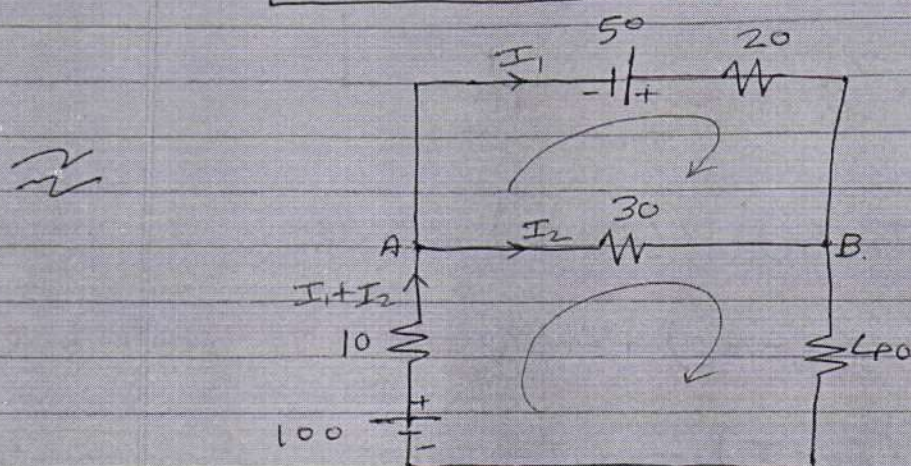 50
20
I₁
- +
30
A
I₂
B.
I₁+I₂
10
40
+
100
-